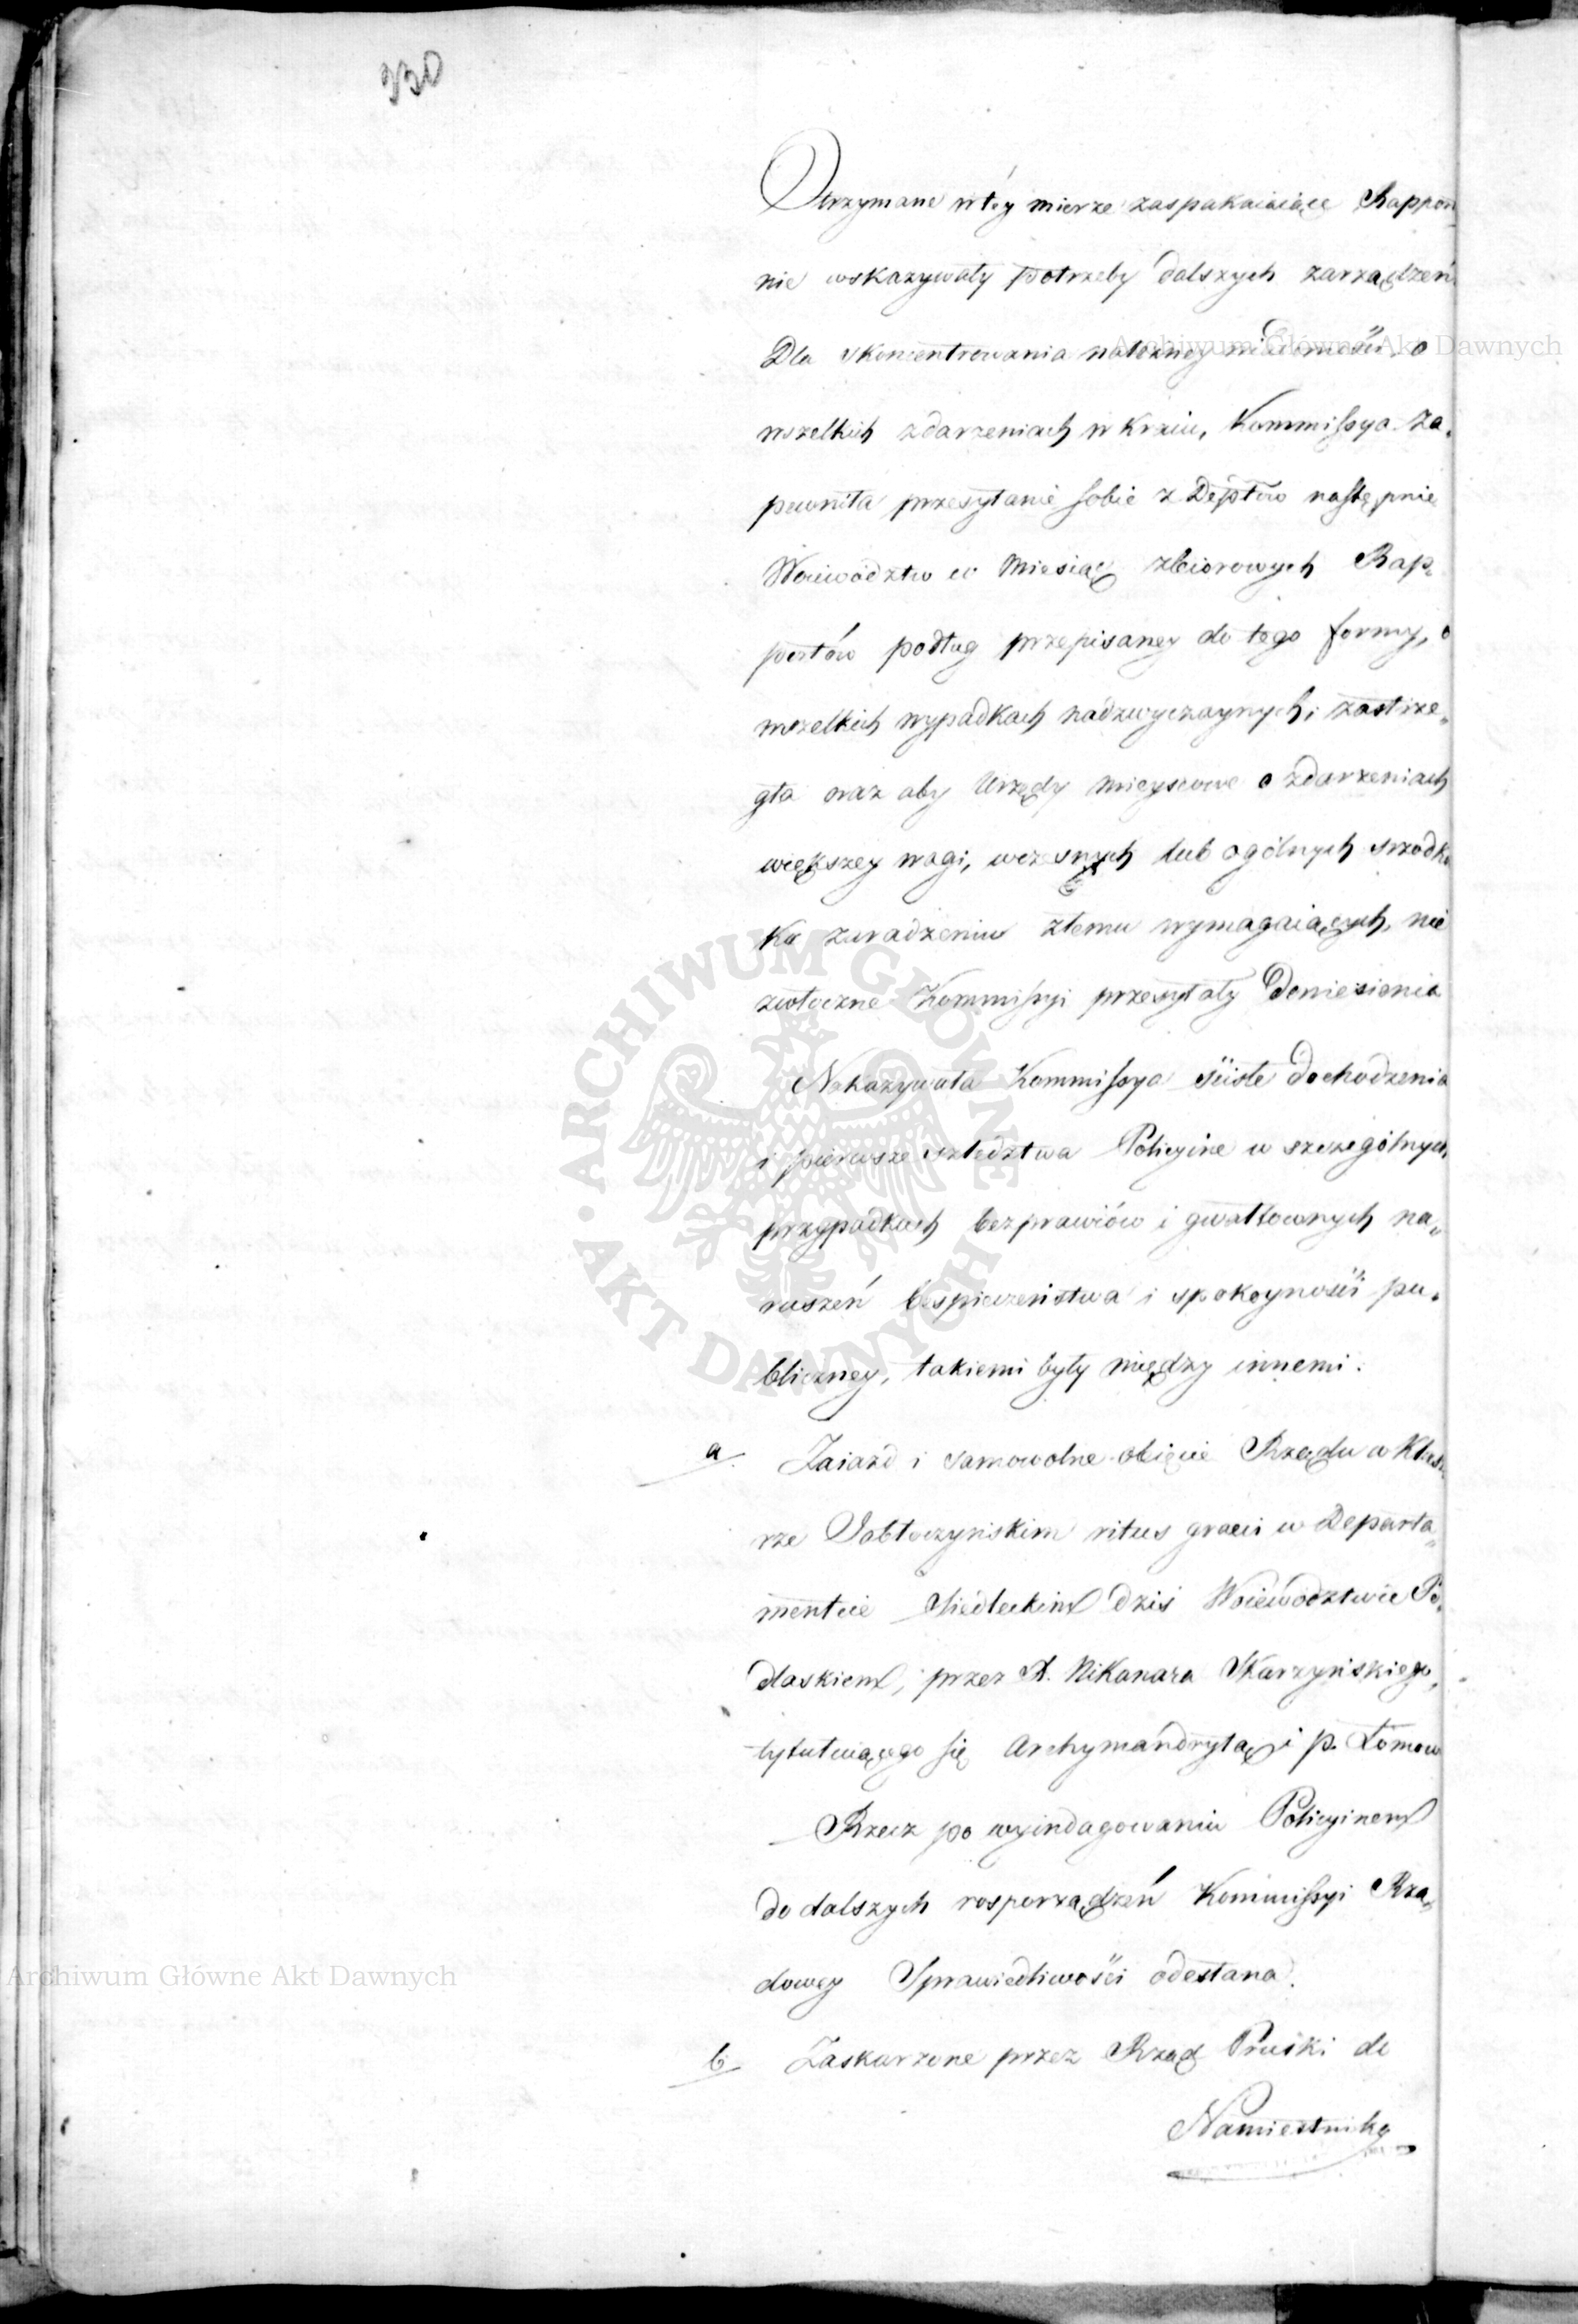 330
Otrzymane w tey mierze zaspakaiaiące Rappor
nie wskazywały potrzeby dalszych zarządzeń
Dla skoncentrowania należney wiadomości, o
wszelkich zdarzeniach w Kraiu, Kommissya za-
pewniła przesyłanie sobie z Deptów następnie
Woiewództw co Miesiąc zbiorowych Rap-
portów podług przepisaney do tego formy, o
wszelkich wypadkach nadzwyczaynych; zastrze-
gła oraz aby Urzędy mieyscowe o zdarzeniach
większey wagi, wczesnych lub ogólnych srzodkó
Ku zaradzeniu złemu wymagaiących, nie
zwłoczne Kommissyi przesyłały Doniesienia
Nakazywała Kommissya ściste dochodzenia
i pierwsze szledztwa Policyine w szczególnych
przypadkach bezprawiów i gwałtownych na-
ruszeń bespieczeństwa i spokoyności pu-
bliczney, takiemi były między innemi:
a Zaiazd i samowolne obięcie Rządu w Klasz
rze Jabłoczyńskim ritus graeci w Departa-
mentcie Siedleckim dziś Woiewództwie Po-
dlaskiem, przez X. Nikanara Skarzyńskiego,
tytułuiącego się Archymandrytą i p. Łomow
Rzecz po wyindagowaniu Policyinem
do dalszych rosporządzeń Kommissyi Rzą-
dowey Sprawiedliwości odesłana.
b Zaskarzone przez Rząd Pruski do
Namiestnika
Archiwum Główne Akt Dawnych
Archiwum Główne Akt Dawnych
ARCHIWUM GŁÓWNE · AKT DAWNYCH ·